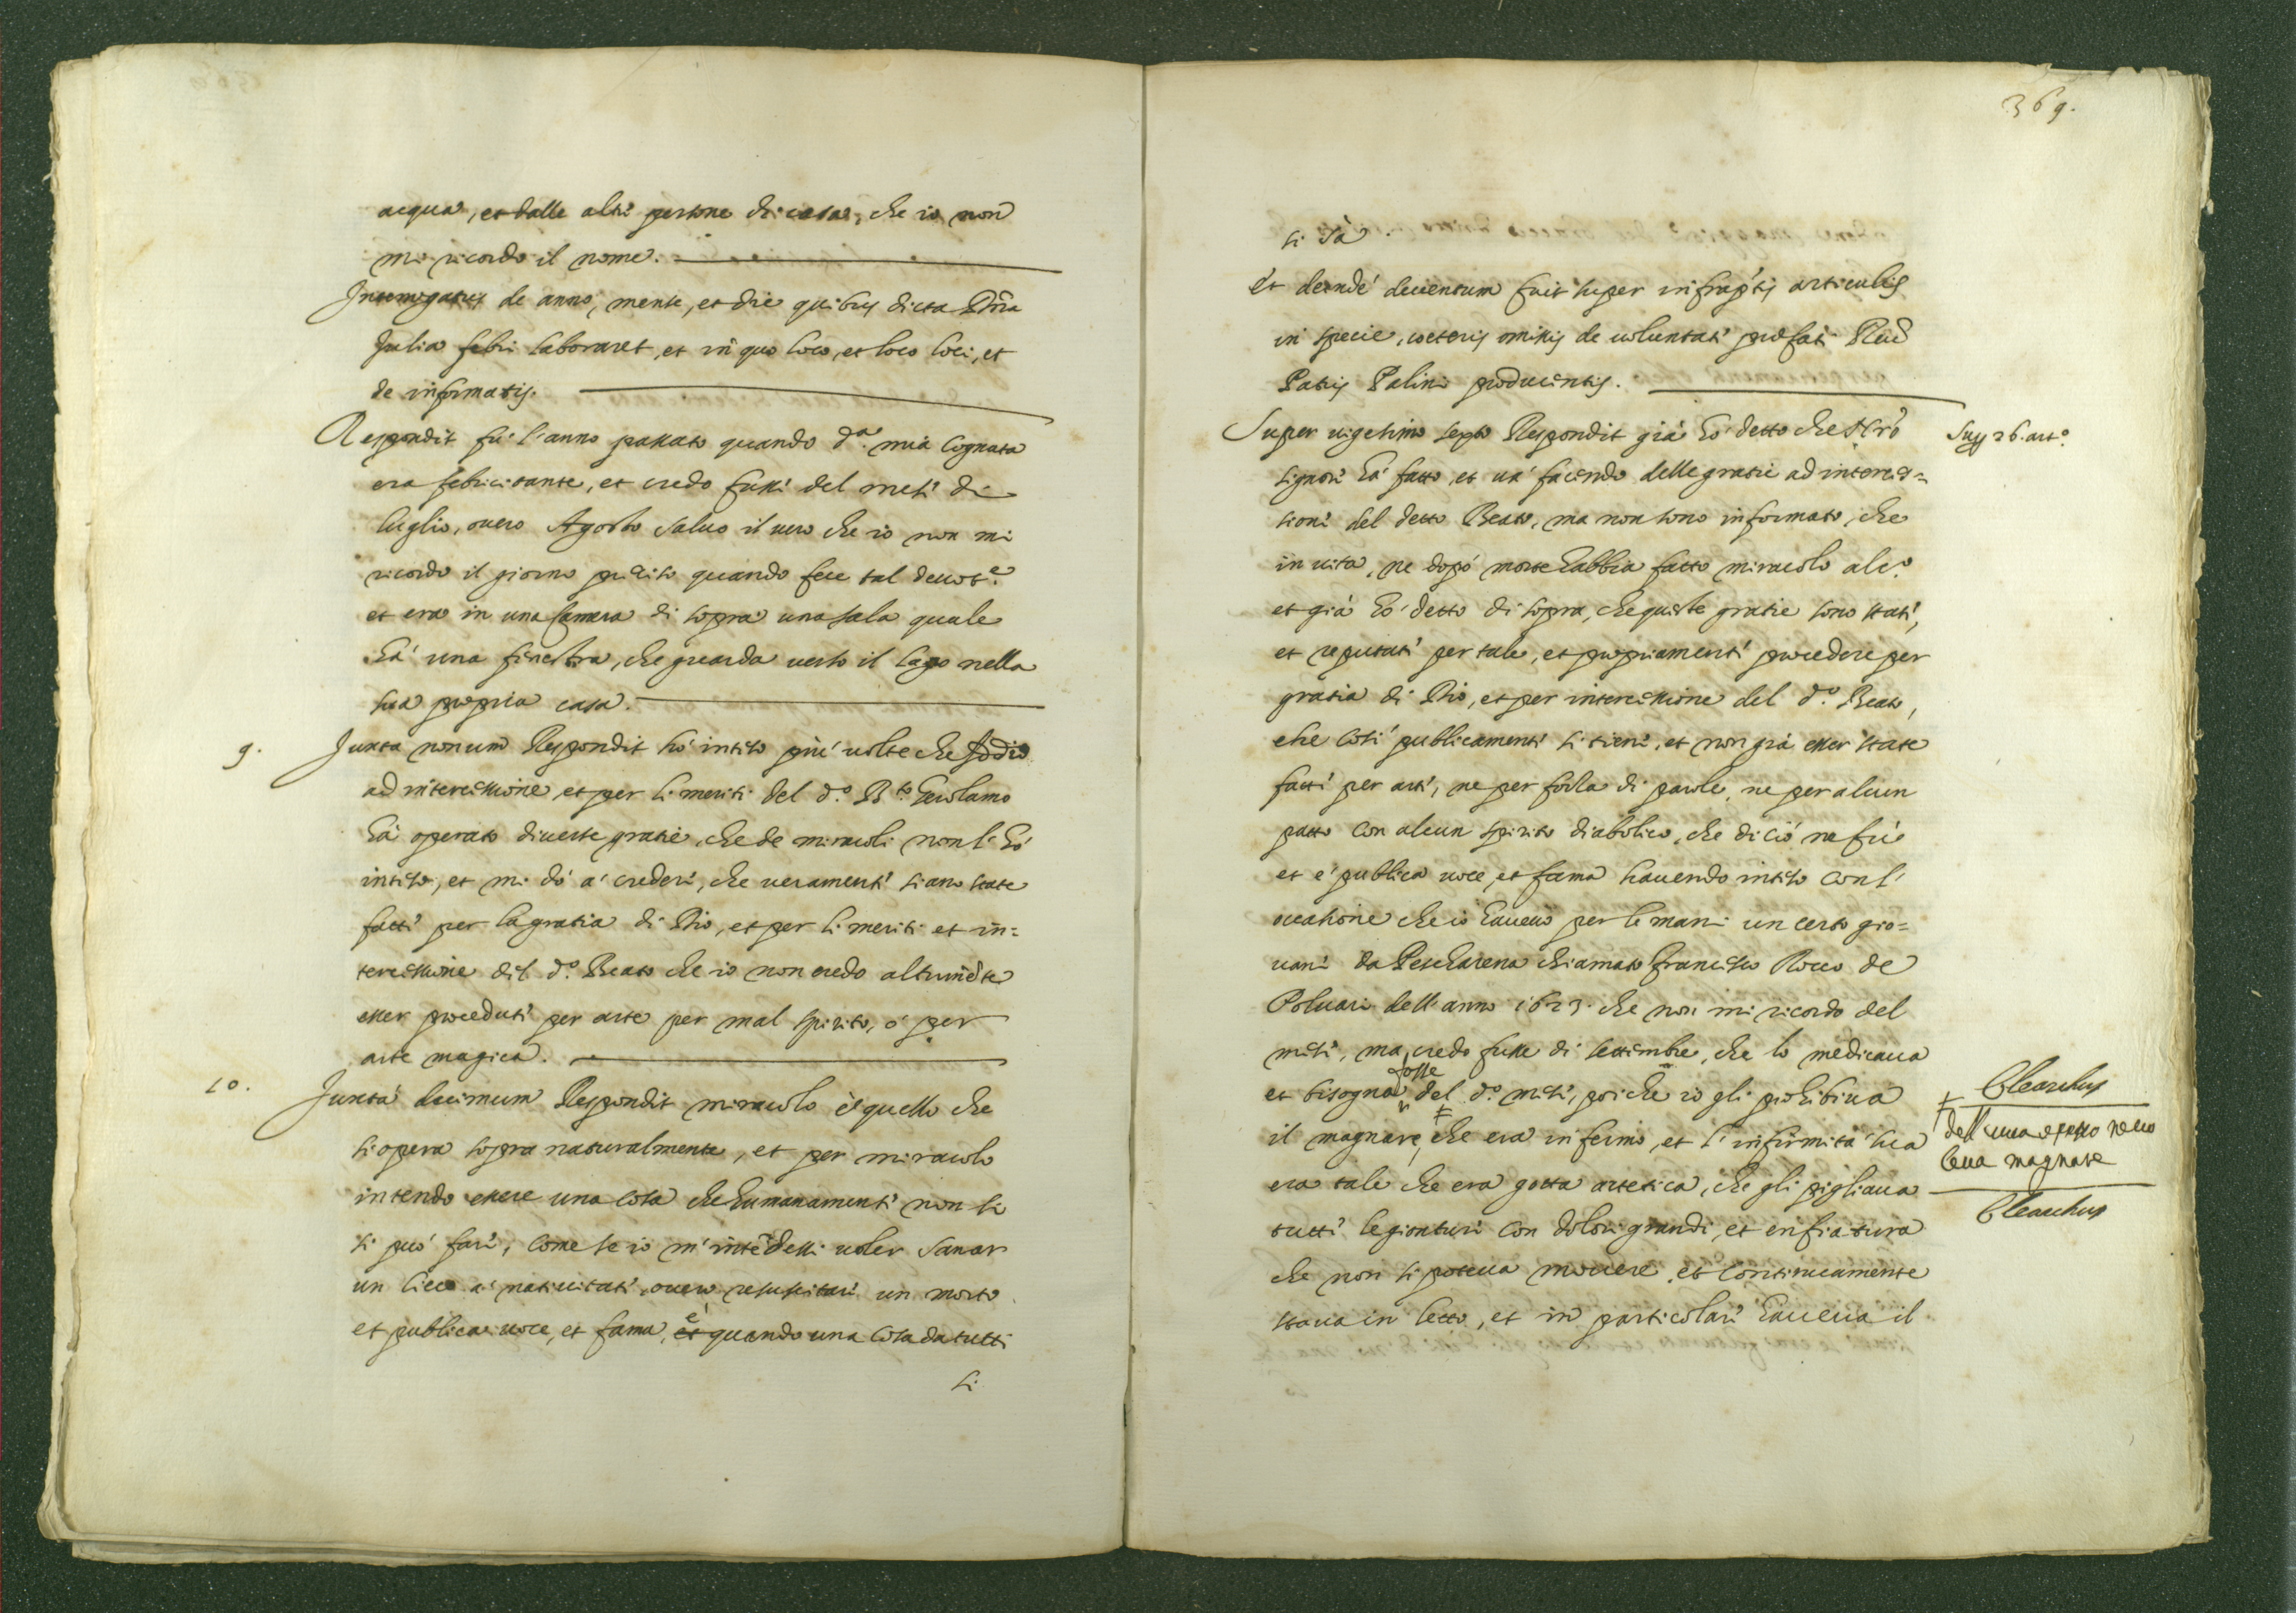 acqua, et dalle altre persone di casa, che io non
mi ricordo il nome.
Interrogatus de anno, mense, et die quibus dicta D.na
Julia febri laboraret, et in quo loco, et loco loci, et
de informatis.
Respondit fù l'anno passato quando d.a mia Cognata
era febricitante, et credo fussi del mese di
luglio, overo Agosto salvo il vero che io non mi
ricordo il giorno preciso quando fece tal devot.e
et era in una Camera di sopra una sala quale
hà una finestra, che guarda verso il lago nella
sua propria casa.
9. Juxta nonum Respondit hò inteso più volte che Iddio
ad intercessione et per li meriti del d.o B.to Gerolamo
hà operato diverse gratie, che de miracoli non l'hò
inteso, et mi dò a' credere, che veramente siano state
fatte per la gratia di Dio, et per li meriti et in=
tercessione del d.o Beato che io non credo altrimẽte
esser procedute per arte per mal spirito, ó per
arte magica.
10. Juxta decimum Respondit miracolo è quello che
si opera sopra naturalmente, et per miracolo
intendo essere una cosa che humanamente non si
si può fare, come se io m'intẽdessi voler sanar
un cieco a' nativitate, overo resuscitare un morto
et publica voce, et fama, è et quando una cosa da tutti
si
369.
si sà
Et deinde deventum fuit super infraptis articulis
in specie, coeteris omissis de voluntate prefati Revd
Patris Palini producentis.
Super vigesimo sexto Respondit già hò detto che N'ro
Signore hà fatto, et và facendo delle gratie ad interces=
sione del detto Beato, ma non sono informato, che
in vita, ne dopò morte habbia fatto miracolo alc.o
et già hò detto di sopra, che queste gratie sono state,
et reputate per tale, et propriamente procedere per
gratia di Dio, et per intercessione del d.o Beato,
che così publicamente si tiene, et non già esser state
fatte per arte, ne per forza di parole, ne per alcun
patto con alcun spirito diabolico, che di ciò ne fù
et è publica voce, et fama havendo inteso con l'
occasione che io havevo per le mani un certo gio=
vane da Pescharena chiamato Francesco Rocco de
Polvari dell'anno 1623. che non mi ricordo del
mese, ma credo fusse di settembre, che lo medicava
fosse
et bisogna del d.o mese, poi che io gli prohibiva
il magnare, che era infermo, et l'infirmità sua
era tale che era gotta artetica, che gli pigliava
tutte le gionture con dolori grandi, et enfiatura
che non si poteva movere, et continuamente
stava in letto, et in particolare haveva il
Sup 26. art.o
Clearchus
dell'uva e esso ne vo
leva magnare
Clearchus